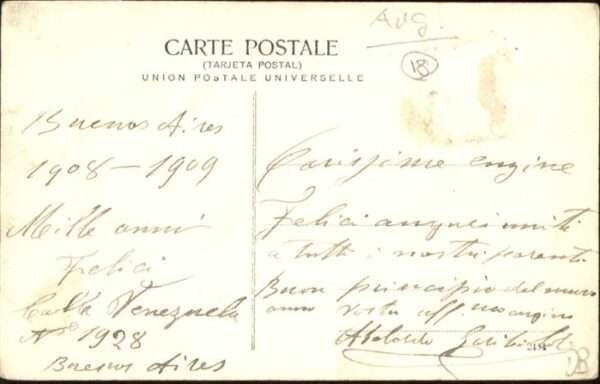 Aug.
18
CARTE POSTALE
(TARJETA POSTAL)
UNION POSTALE UNIVERSELLE
Buenos Aires
1908-1909
Mille anni
Felici
Calle Venezuela
No 1928
Buenos Aires
Carissime cugine
Felici auguri uniti
a tutti i nostri parenti
Buon principio del nuovo
anno vostro aff mo cugino
DB